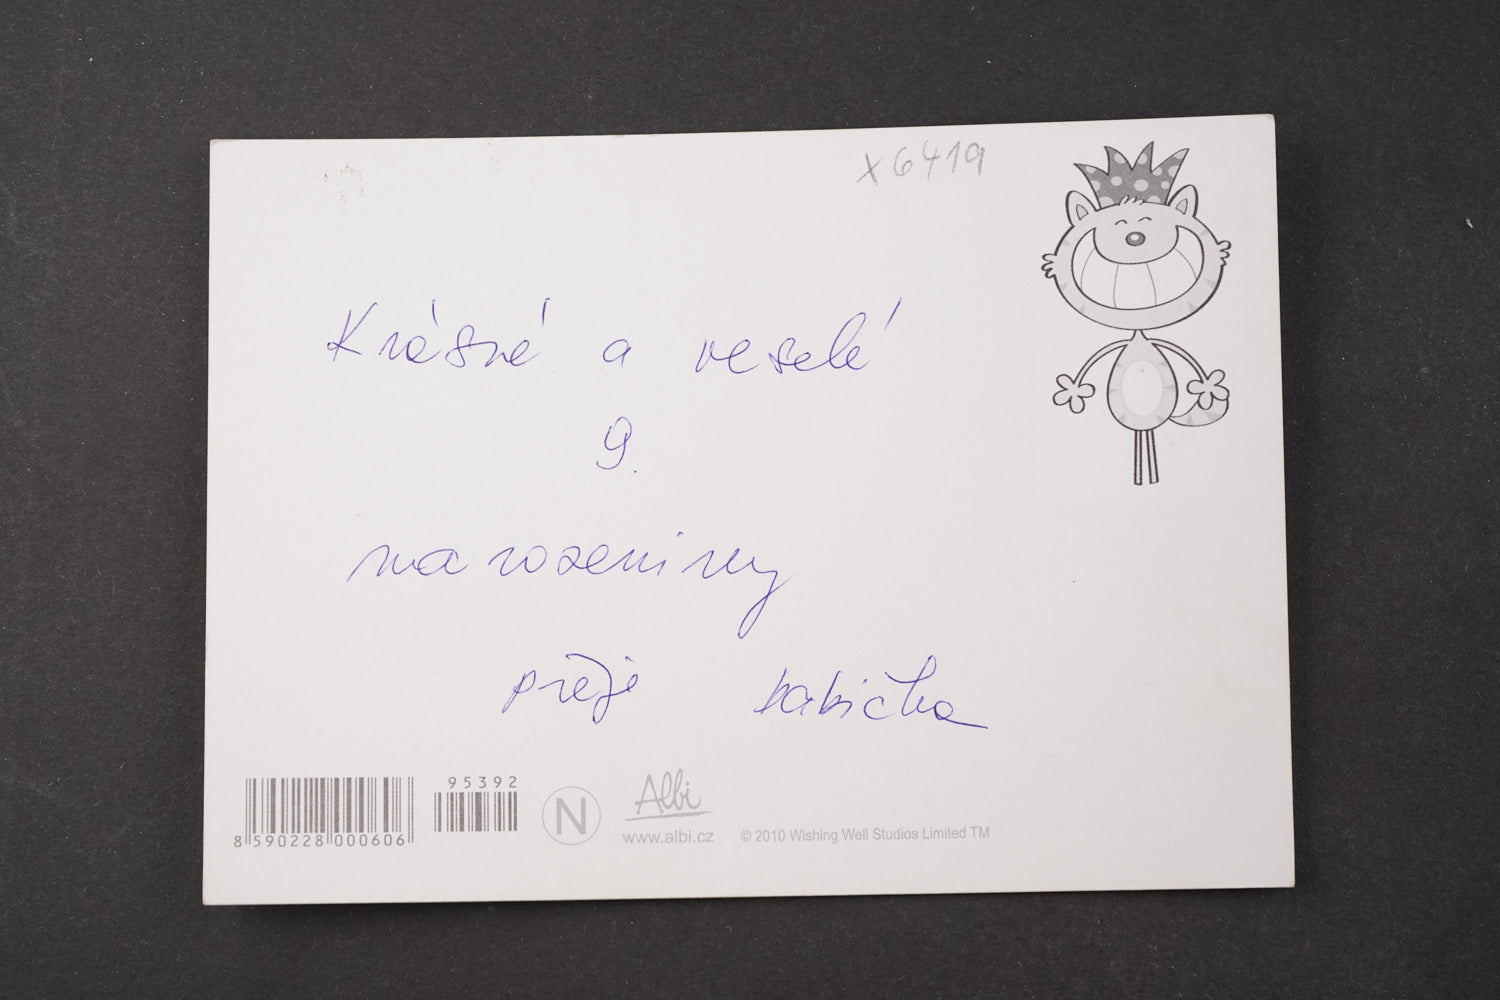 x6419
Krásné a veselé
9.
narozeniny
přeje babička
95392
8 590228 000606
N
Albi
www.albi.cz
© 2010 Wishing Well Studios Limited TM